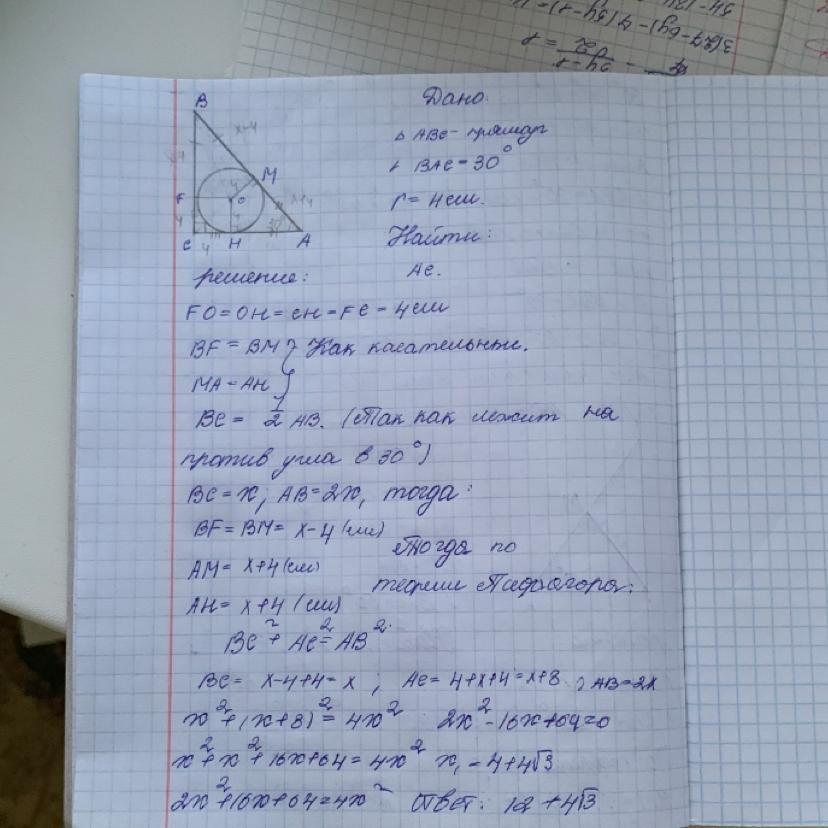 Дано:
∆ ABC - прямоуг
∠ BAC = 30°
r = 4 см.
Найти:
AC.
B
x-4
M
x+4
F
4
O
30°
C
4
H
A
решение:
FO = OH = CH = FC = 4 см
BF = BM } Как касательные.
MA = AH }
BC = 1/2 AB. (Так как лежит на
против угла в 30°)
BC = x; AB = 2x, тогда:
BF = BM = x-4 (см)
AM = x+4 (см)
AH = x+4 (см)
Тогда по
теореме Пифагора:
BC² + AC² = AB²
BC = x-4+4 = x ; AC = 4+x+4 = x+8 ; AB = 2x
x² + (x+8)² = 4x² 2x² - 16x + 64 = 0
x² + x² + 16x + 64 = 4x² x₁ = 4+4√3
2x² + 16x + 64 = 4x² Ответ: 12 + 4√3